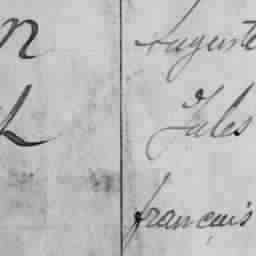 n Auguste
L Jules
françois